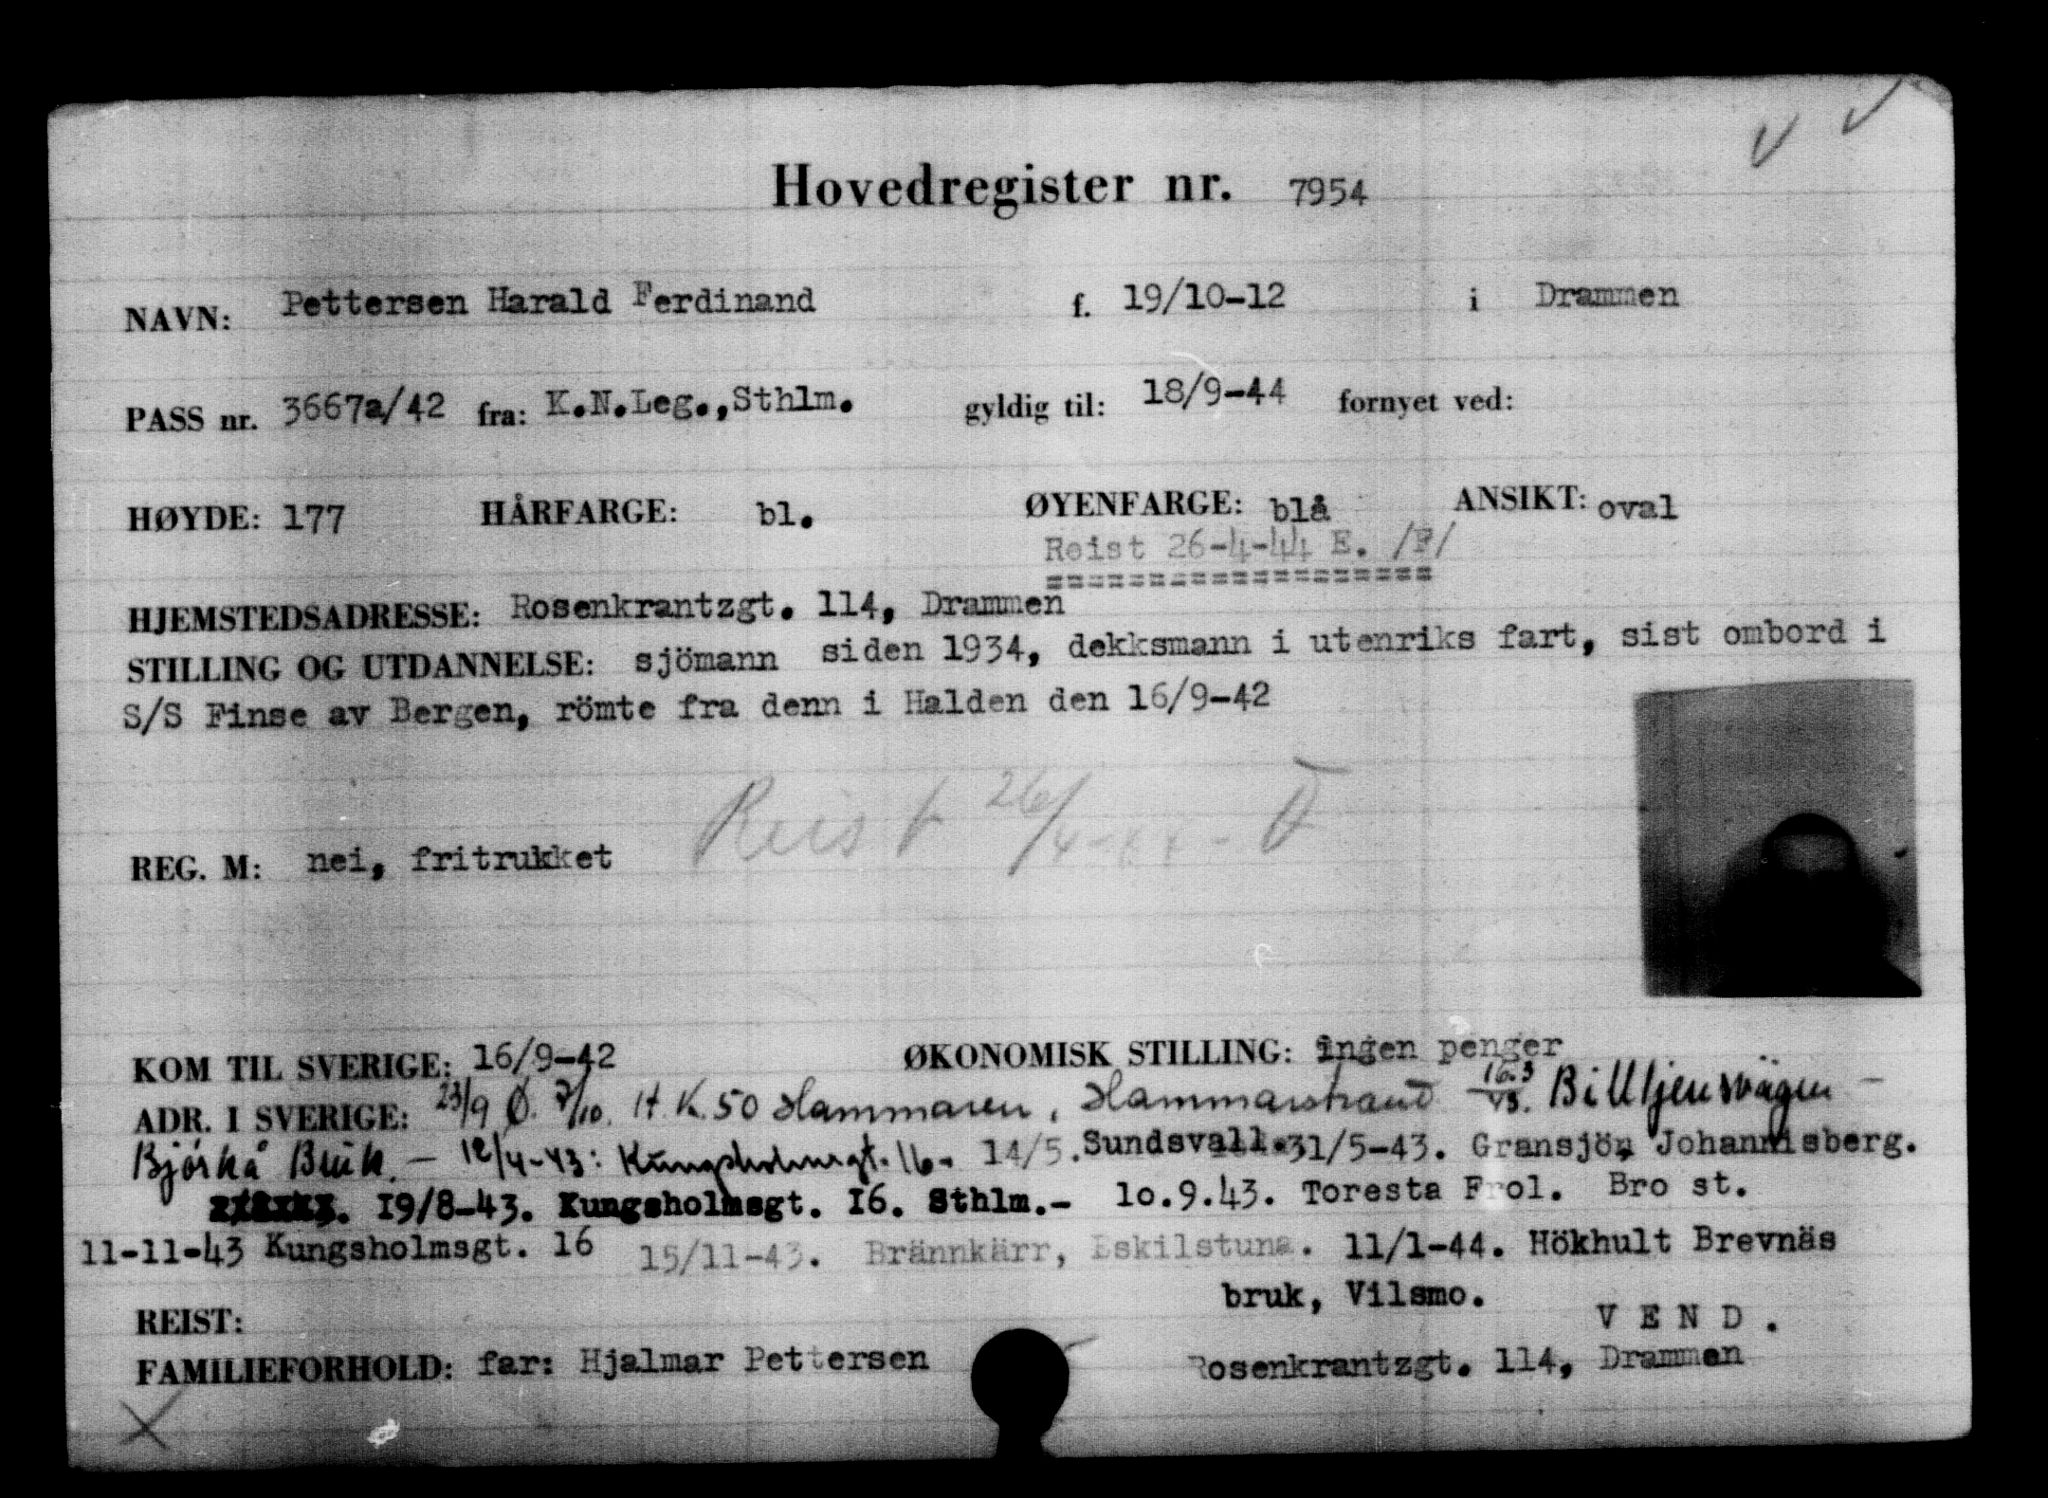 Hovedregister nr. 7954
NAVN: Pettersen Harald Ferdinand f. 19/10-12 i Drammen
PASS nr. 3667a/42 fra: K.N.Leg.,Sthlm. gyldig til: 18/9-44 fornyet ved:
HØYDE: 177 HÅRFARGE: bl. ØYENFARGE: blå ANSIKT: oval
Reist 26-4-44 E. /F/
HJEMSTEDSADRESSE: Rosenkrantzgt. 114, Drammen
STILLING OG UTDANNELSE: sjömann siden 1934, dekksmann i utenriks fart, sist ombord i
S/S Finse av Bergen, römte fra denn i Halden den 16/9-42
Reist 26/4-44-
REG. M: nei, fritrukket
KOM TIL SVERIGE: 16/9-42 ØKONOMISK STILLING: ingen penger
ADR. I SVERIGE: 23/9 Ø. 7/10. H.K.50 Hammaren, Hammarstrand 16.3 43.
Björkå Bruk. - 12/4-43: Kungsholmsgt. 16. 14/5. Sundsvall. 31/5-43. Gransjön, Johannisberg.
19/8-43. Kungsholmsgt. 16. Sthlm.- 10.9.43. Toresta Frol. Bro st.
11-11-43 Kungsholmsgt. 16 15/11-43. Brännkärr, Eskilstuna. 11/1-44. Hökhult Brevnäs
bruk, Vilsmo.
REIST: V E N D .
FAMILIEFORHOLD: far: Hjalmar Pettersen Rosenkrantzgt. 114, Drammen